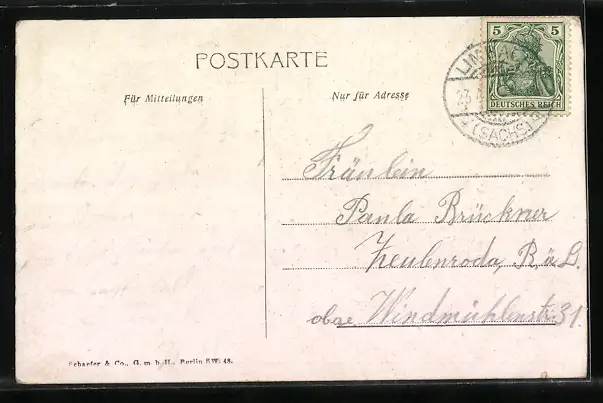 POSTKARTE
Für Mitteilungen
Nur für Adresse
5 5
DEUTSCHES REICH
(SACHS)
Fräulein
Paula Brückner
Zeulenroda, R. ä. L.
obre Windmühlenstr. 31.
Schaefer & Co., G. m. b. H., Berlin SW. 48.